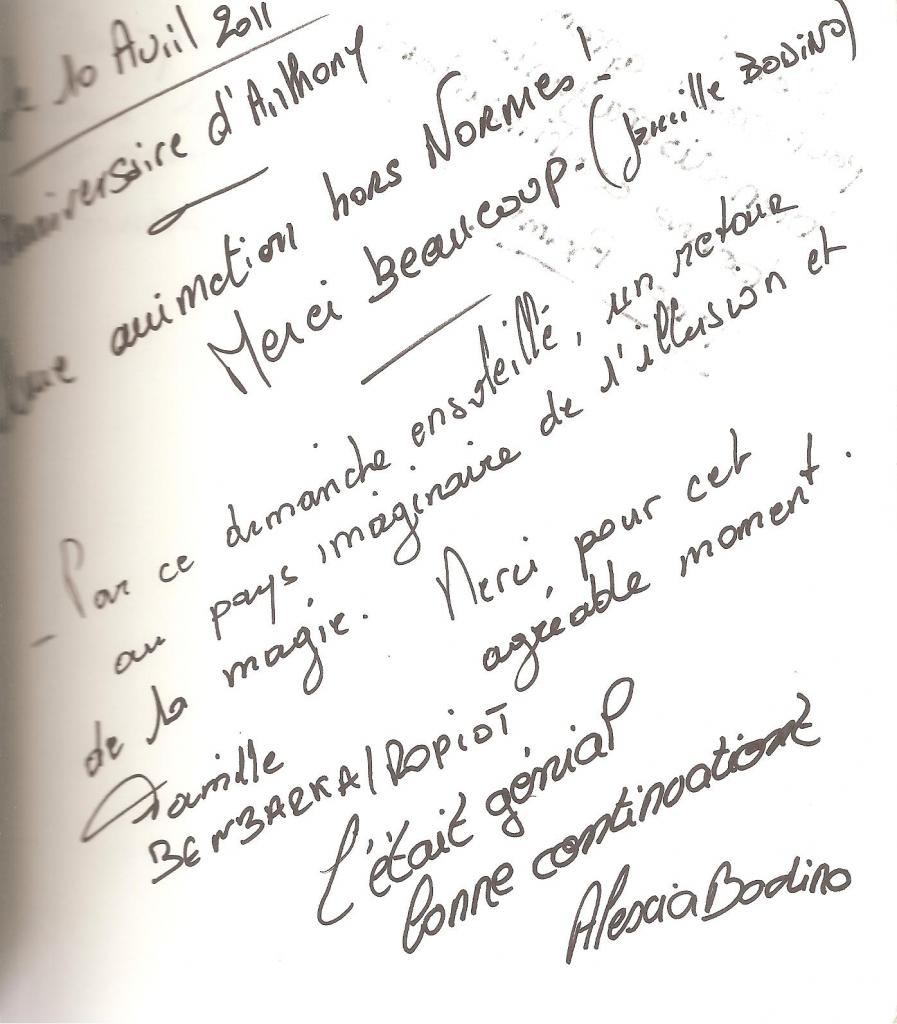 Le 10 Avril 2011
Anniversaire d'Anthony
Une animation hors NORMES !
Merci BEAUCOUP. (famille BODINO)
- Par ce dimanche ensoleillé, un retour
au pays imaginaire de l'illusion et
de la magie. Merci pour cet
agréable moment.
Famille
BENBARKA / ROPIOT
C'était génial
bonne continuation
Alexia Bodino